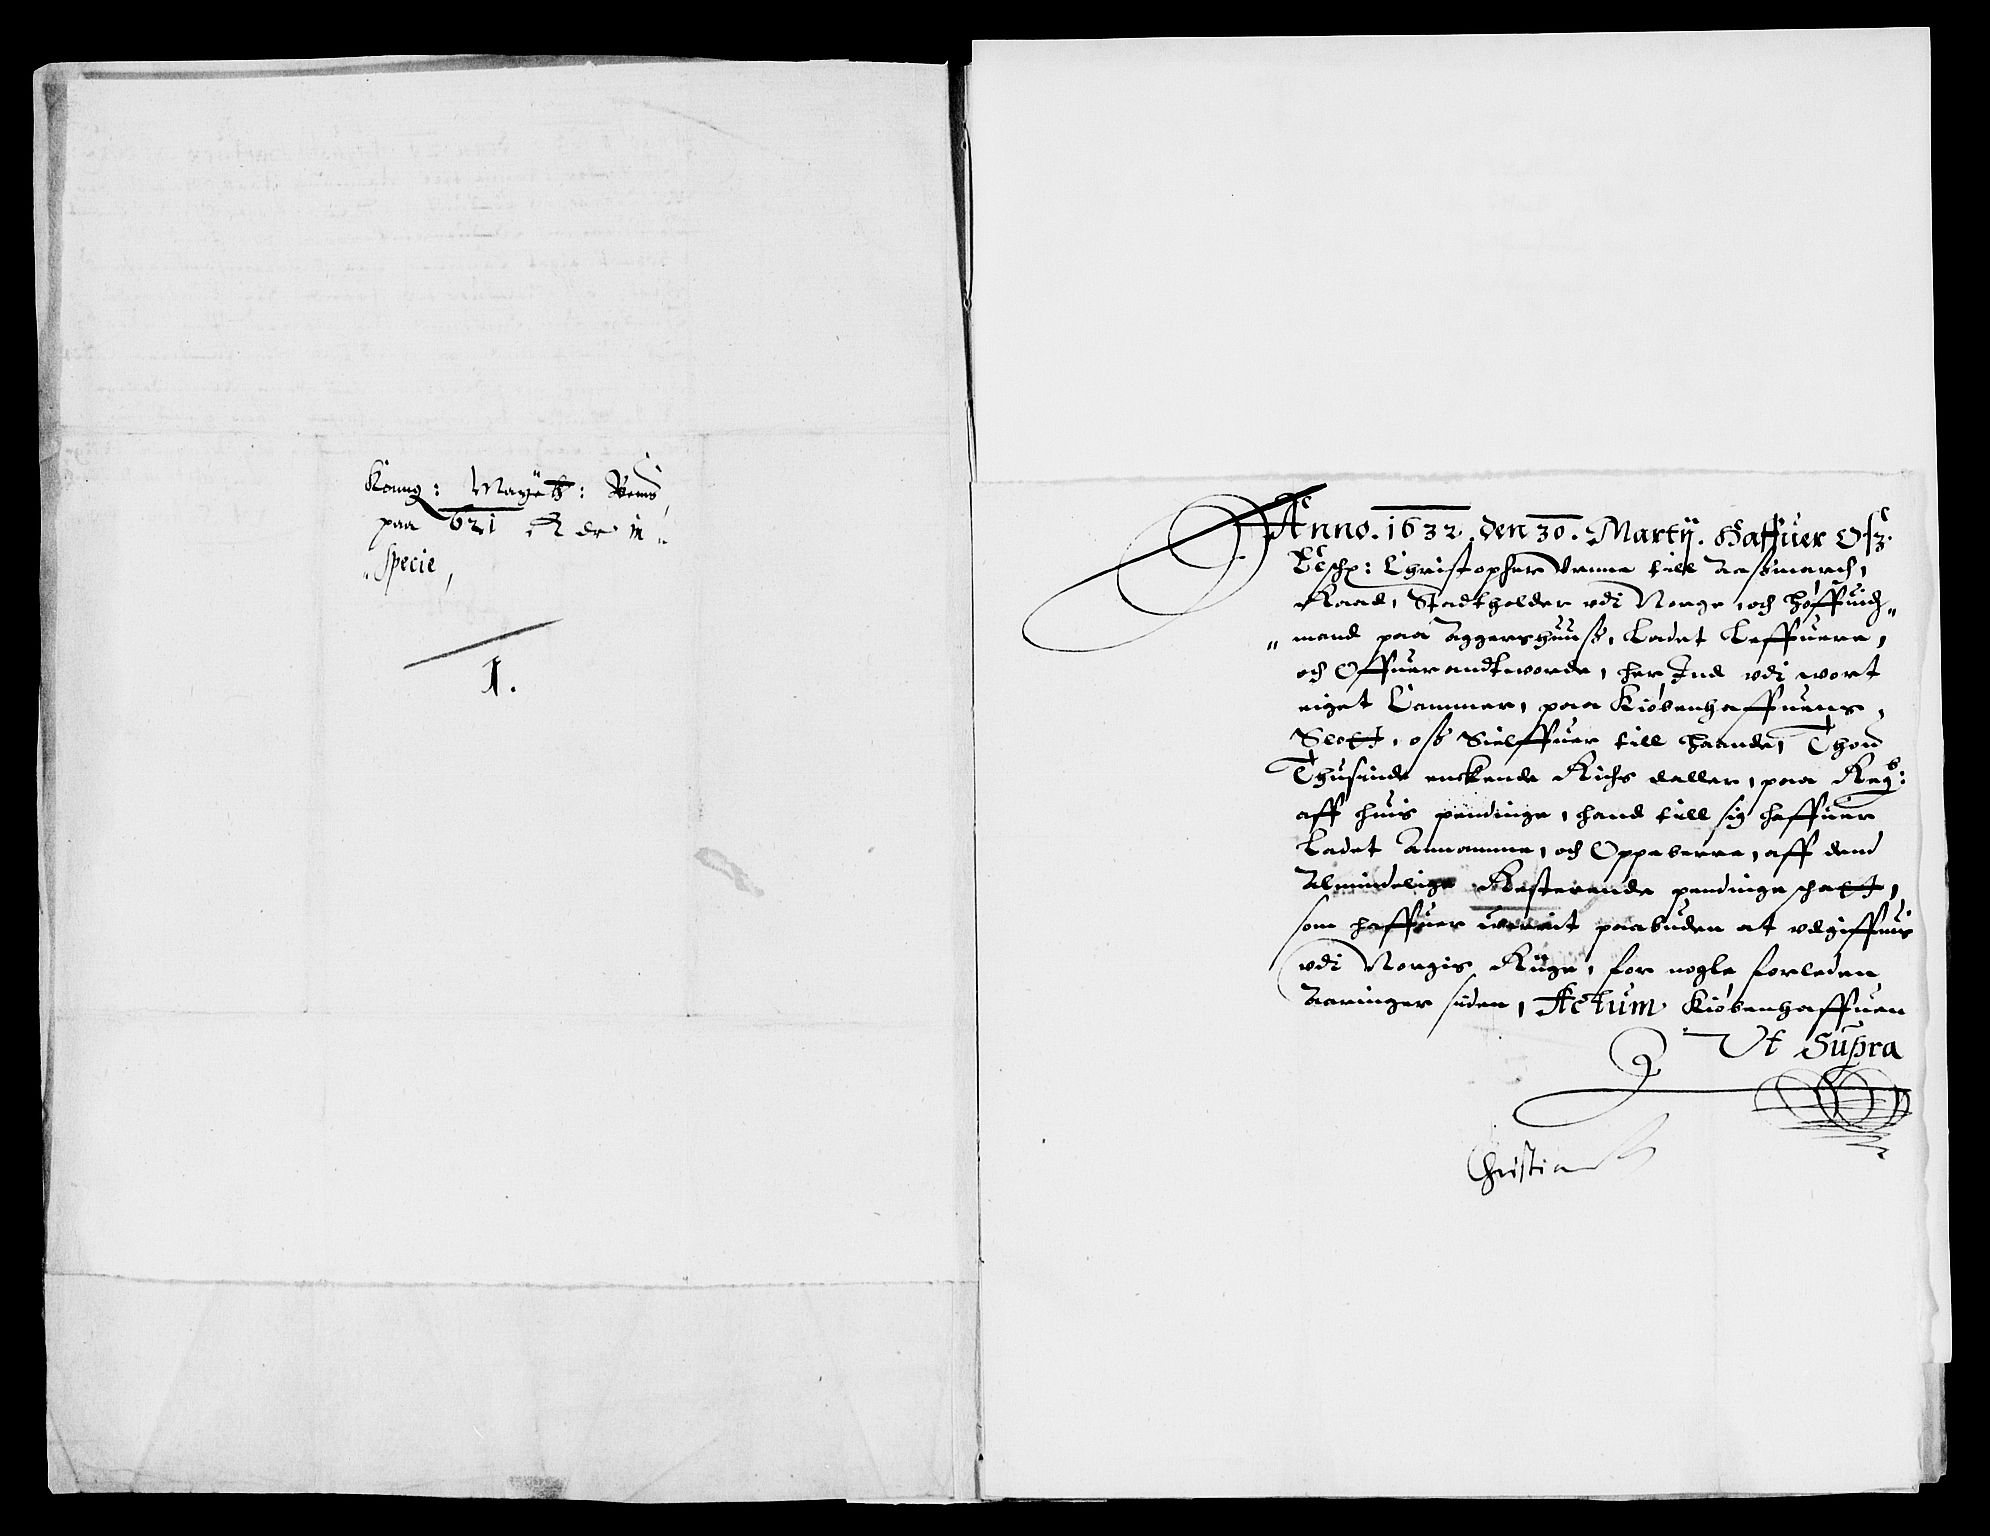 Konng: Mayetz: Bewis
paa 621 R dr in
Specie,
1.
Anno. 1632. den 30. Martij. Haffuer Osz
Elschl: Christopher Vrnne till Aaszmarch,
Raad, Stadtholder vdi Norge, och Höffuids
mand paa Aggershuusz, Ladet Leffuere,
och Offuerandtworde, her Ind vdi wort
eiget Cammer, paa Kiöbenhaffuens
Slott, osz Sielffuer till haande, Thou
Thusinde enckende Richs daller, paa Regb:
aff huis pendinge, hand till sig haffuer
Ladet Annamme, och Oppeberre, aff dend
Almindelige Resterende pendinge schatt,
som haffuer werrit paabuden at vdgiffuis
vdi Norgis Riige, for nogle forleden
Aaringer siden, Actum Kiöbenhaffuen
Vt Supra
Christian